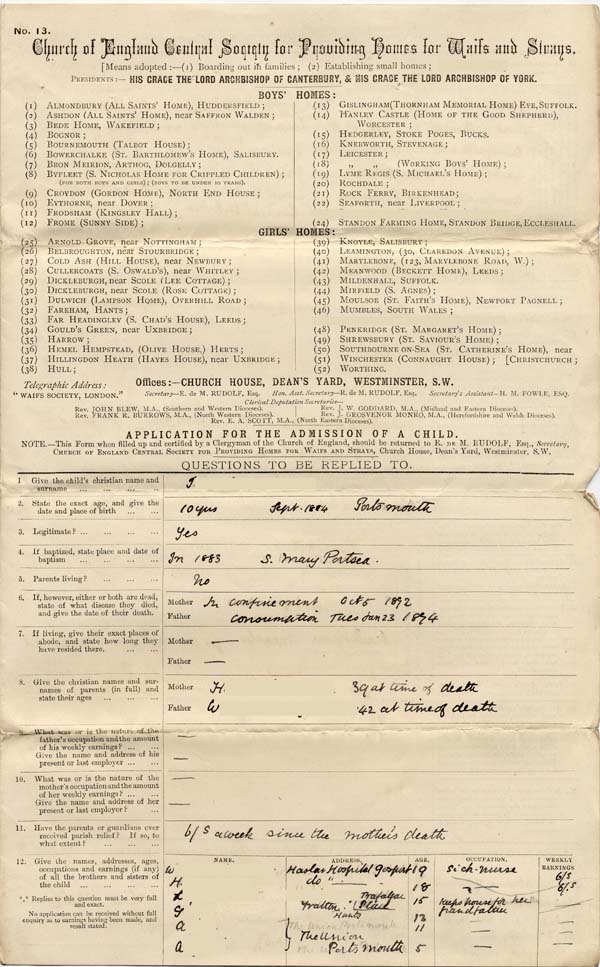 No. 13.
Church of England Central Society for Providing Homes for Waifs and Strays.
[Means adopted:—(1) Boarding out in families; (2) Establishing small homes;
PRESIDENTS:— HIS GRACE THE LORD ARCHBISHOP OF CANTERBURY, & HIS GRACE THE LORD ARCHBISHOP OF YORK.
BOYS' HOMES:
(1) ALMONDBURY (ALL SAINTS' HOME), HUDDERSFIELD;
(2) ASHDON (ALL SAINTS' HOME), near SAFFRON WALDEN;
(3) BEDE HOME, WAKEFIELD;
(4) BOGNOR;
(5) BOURNEMOUTH (TALBOT HOUSE);
(6) BOWERCHALKE (ST. BARTHLOMEW'S HOME), SALISBURY.
(7) BRON MEIRION, ARTHOG, DOLGELLY;
(8) BYFLEET (S. NICHOLAS HOME FOR CRIPPLED CHILDREN);
(FOR BOTH BOYS AND GIRLS); (BOYS TO BE UNDER 10 YEARS).
(9) CROYDON (GORDON HOME), NORTH END HOUSE;
(10) EYTHORNE, near DOVER;
(11) FRODSHAM (KINGSLEY HALL);
(12) FROME (SUNNY SIDE);
(13) GISLINGHAM (THORNHAM MEMORIAL HOME) EYE, SUFFOLK.
(14) HANLEY CASTLE (HOME OF THE GOOD SHEPHERD),
WORCESTER;
(15) HEDGERLEY, STOKE POGES, BUCKS.
(16) KNEBWORTH, STEVENAGE;
(17) LEICESTER;
(18) „ „ (WORKING BOYS' HOME);
(19) LYME REGIS (S. MICHAEL'S HOME);
(20) ROCHDALE;
(21) ROCK FERRY, BIRKENHEAD;
(22) SEAFORTH, near LIVERPOOL;
(24) STANDON FARMING HOME, STANDON BRIDGE, ECCLESHALL.
GIRLS' HOMES:
(25) ARNOLD GROVE, near NOTTINGHAM;
(26) BELBROUGHTON, near STOURBRIDGE;
(27) COLD ASH (HILL HOUSE), near NEWBURY;
(28) CULLERCOATS (S. OSWALD'S), near WHITLEY;
(29) DICKLEBURGH, near SCOLE (LEE COTTAGE);
(30) DICKLEBURGH, near SCOLE (ROSE COTTAGE);
(31) DULWICH (LAMPSON HOME), OVERHILL ROAD;
(32) FAREHAM, HANTS;
(33) FAR HEADINGLEY (S. CHAD'S HOUSE), LEEDS;
(34) GOULD'S GREEN, near UXBRIDGE;
(35) HARROW;
(36) HEMEL HEMPSTEAD, (OLIVE HOUSE,) HERTS;
(37) HILLINGDON HEATH (HAYES HOUSE), near UXBRIDGE;
(38) HULL;
(39) KNOYLE, SALISBURY;
(40) LEAMINGTON, (30, CLAREDON AVENUE);
(41) MARYLEBONE, (123, MARYLEBONE ROAD, W.);
(42) MEANWOOD (BECKETT HOME), LEEDS;
(43) MILDENHALL, SUFFOLK.
(44) MIRFIELD (S. AGNES);
(45) MOULSOE (ST. FAITH'S HOME), NEWPORT PAGNELL;
(46) MUMBLES, SOUTH WALES;
(48) PENKRIDGE (ST. MARGARET'S HOME);
(49) SHREWSBURY (ST. SAVIOUR'S HOME);
(50) SOUTHBOURNE-ON-SEA (ST. CATHERINE'S HOME), near
(51) WINCHESTER (CONNAUGHT HOUSE); [CHRISTCHURCH;
(52) WORTHING.
Telegraphic Address:
"WAIFS SOCIETY, LONDON."
Offices:—CHURCH HOUSE, DEAN'S YARD, WESTMINSTER, S.W.
Secretary—E. de M. RUDOLF, Esq. Hon. Asst. Secretary—R. de M. RUDOLF, Esq. Secretary's Assistant—H. M. FOWLE, ESQ.
Clerical Deputation Secretaries—
Rev. JOHN BLEW, M.A., (Southern and Western Dioceses).
Rev. FRANK R. BURROWS, M.A., (North Western Dioceses).
Rev. J. W. GODDARD, M.A., (Midland and Eastern Dioceses).
Rev. J. GROSVENOR MONRO, M.A., (Herefordshire and Welsh Dioceses).
Rev. E. A. SCOTT, M.A., (North Eastern Dioceses).
APPLICATION FOR THE ADMISSION OF A CHILD.
NOTE.—This Form when filled up and certified by a Clergyman of the Church of England, should be returned to E. DE M. RUDOLF, Esq., Secretary,
CHURCH OF ENGLAND CENTRAL SOCIETY FOR PROVIDING HOMES FOR WAIFS AND STRAYS, Church House, Dean's Yard, Westminster, S.W.
QUESTIONS TO BE REPLIED TO.
1 Give the child's christian name and
surname
2. State the exact age, and give the
date and place of birth
10 yrs Sept. 1884 Portsmouth
3. Legitimate?
Yes
4. If baptized, state place and date of
baptism
In 1883 S. Mary Portsea.
5. Parents living?
No
6. If, however, either or both are dead,
state of what disease they died,
and give the date of their death.
Mother In confinement Oct 5 1892
Father consumption Tues Jan 23 1894
7. If living, give their exact places of
abode, and state how long they
have resided there.
Mother —
Father —
8. Give the christian names and sur-
names of parents (in full) and
state their ages
Mother H. 39 at time of death
Father W 42 at time of death
9. What was or is the nature of the
father's occupation and the amount
of his weekly earnings?
Give the name and address of his
present or last employer
—
—
10. What was or is the nature of the
mother's occupation and the amount
of her weekly earnings?
Give the name and address of her
present or last employer?
—
—
11. Have the parents or guardians ever
received parish relief? If so, to
what extent?
6/s a week since the mother's death
12. Give the names, addresses, ages,
occupations and earnings (if any)
of all the brothers and sisters of
the child
"." Replies to this question must be very full
and exact.
No application can be received without full
enquiry as to earnings having been made, and
result stated.
NAME. ADDRESS. AGE. OCCUPATION. WEEKLY
EARNINGS
W Haslar Hospital Gosport 19 Sick-nurse 6/s
H. do " 18 8/s
Trafalgar
Fratton Place 15 keeps house for her
grandfather
Hants 13 —
A 11 —
The Union
A Portsmouth 5 —